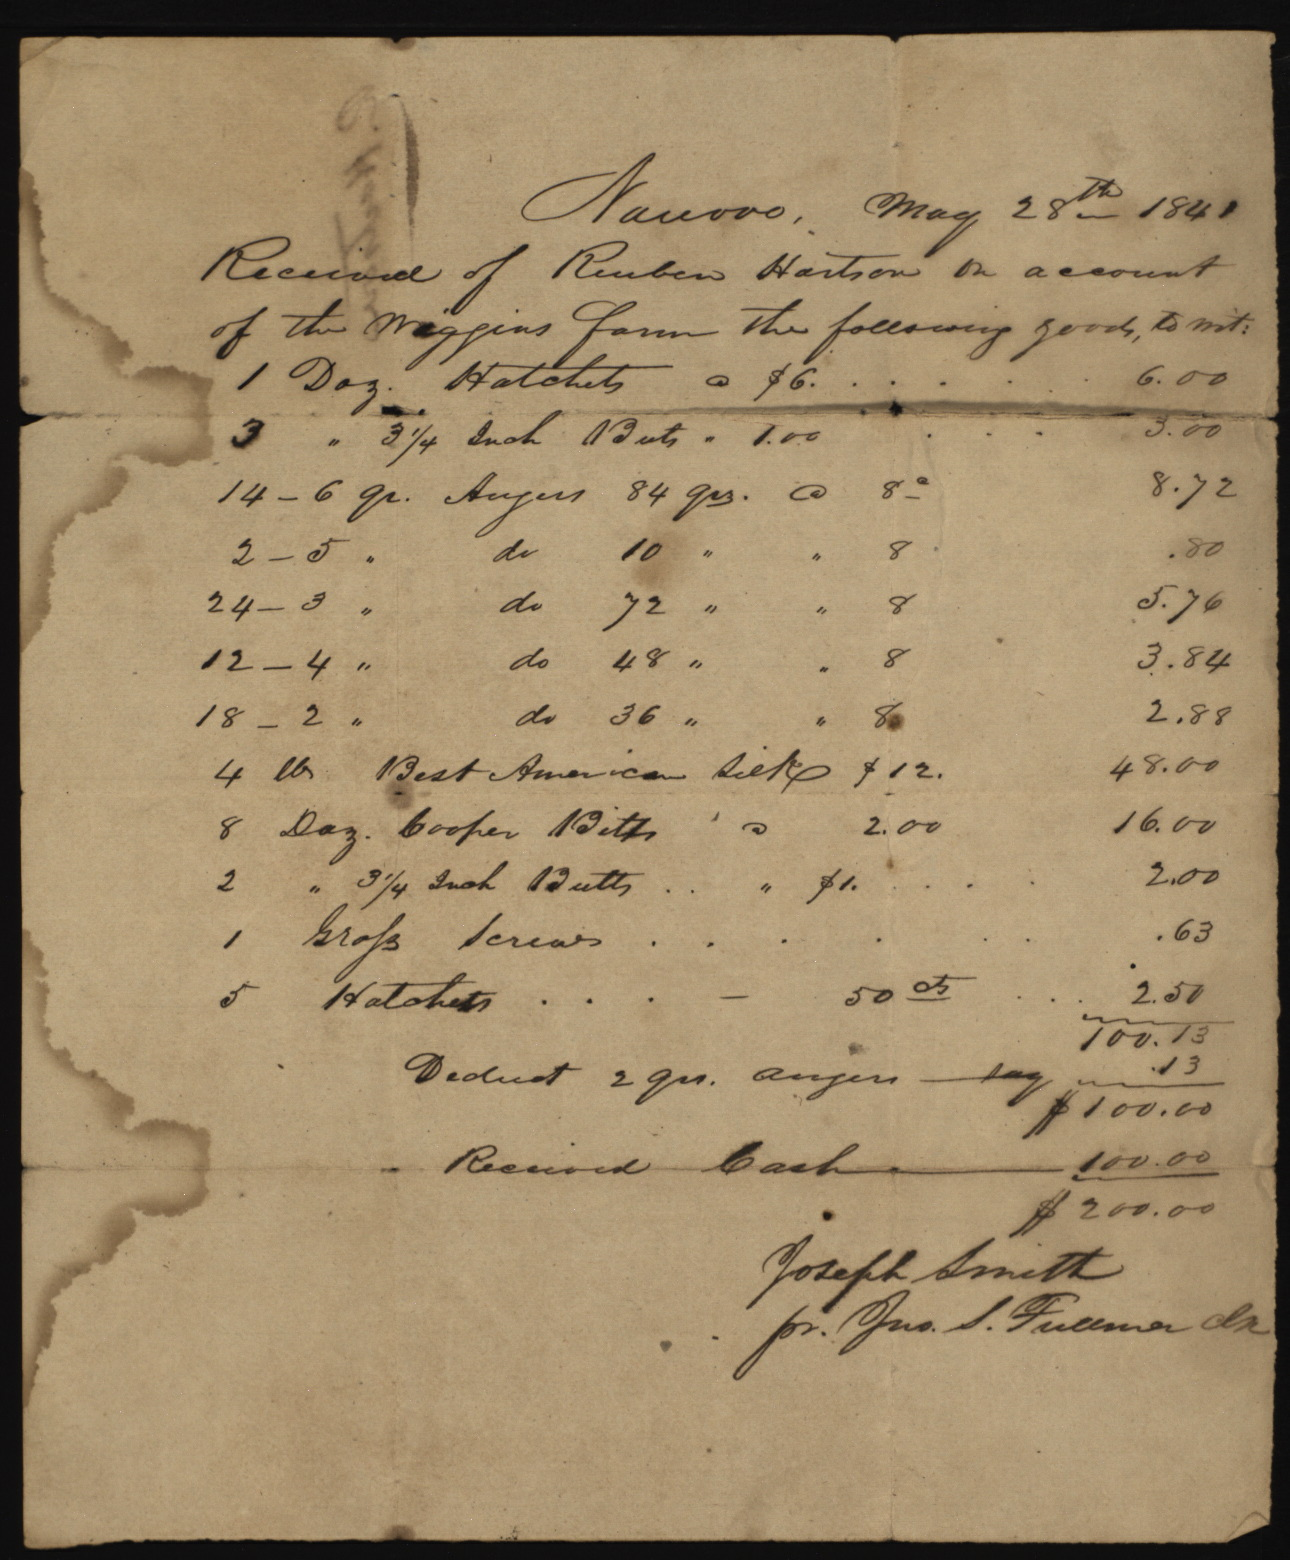 Nauvoo, May 28th 1841
Received of Reuben Hartson on account
of the Wiggins farm the following goods, to wit:
1 Doz. Hatchets @ $6. . . . . . . 6.00
3 " 3 1/4 Inch Buts " 1.00 . . . 3.00
14 – 6 qr. Augers 84 qrs. @ 8c 8.72
2 – 5 " do 10 " " 8 .80
24 – 3 " do 72 " " 8 5.76
12 – 4 " do 48 " " 8 3.84
18 – 2 " do 36 " " 8 2.88
4 lbs Best American Silk $12. 48.00
8 Doz. Cooper Bitts @ 2.00 16.00
2 " 3 1/4 Inch Butts . . " $1. . . . 2.00
1 Gross Screws . . . . . . .63
5 Hatchets . . . – 50 cts . . . 2.50
100.13
Deduct 2 qrs. augers — say .13
$100.00
Received Cash — 100.00
$200.00
Joseph Smith
pr. Jno. S. Fullmer Clk